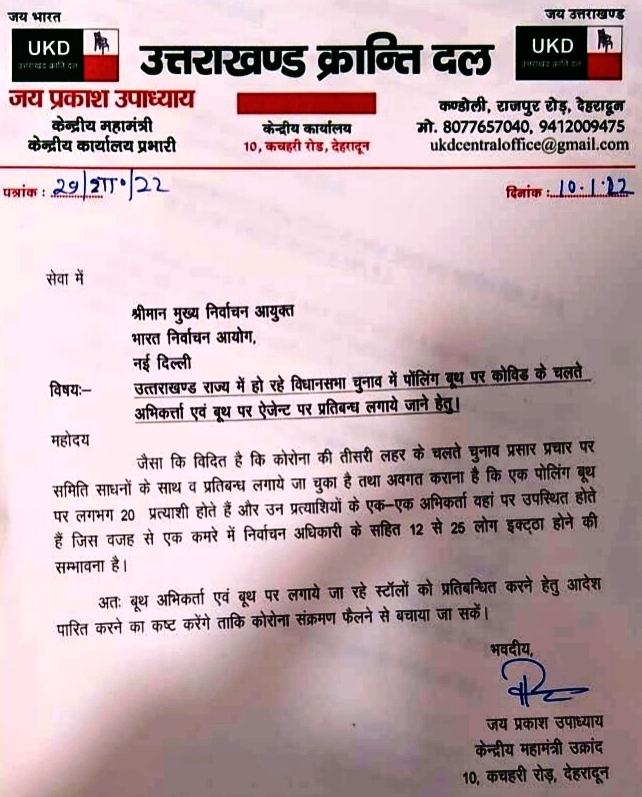 जय भारत
जय उत्तराखण्ड
UKD
उत्तराखंड क्रांति दल
उत्तराखण्ड क्रान्ति दल
UKD
उत्तराखंड क्रांति दल
जय प्रकाश उपाध्याय
केन्द्रीय महामंत्री
केन्द्रीय कार्यालय प्रभारी
केन्द्रीय कार्यालय
10, कचहरी रोड, देहरादून
कण्डोली, राजपुर रोड़, देहरादून
मो. 8077657040, 9412009475
ukdcentraloffice@gmail.com
पत्रांक : 29/शा०/22
दिनांक : 10.1.22
सेवा में
श्रीमान मुख्य निर्वाचन आयुक्त
भारत निर्वाचन आयोग,
नई दिल्ली
विषयः– उत्तराखण्ड राज्य में हो रहे विधानसभा चुनाव में पोंलिंग बूथ पर कोविड के चलते
अभिकर्त्ता एवं बूथ पर ऐजेन्ट पर प्रतिबन्ध लगाये जाने हेतु।
महोदय
जैसा कि विदित है कि कोरोना की तीसरी लहर के चलते चुनाव प्रसार प्रचार पर
समिति साधनों के साथ व प्रतिबन्ध लगाये जा चुका है तथा अवगत कराना है कि एक पोलिंग बूथ
पर लगभग 20 प्रत्याशी होते हैं और उन प्रत्याशियों के एक–एक अभिकर्ता वहां पर उपस्थित होते
हैं जिस वजह से एक कमरे में निर्वाचन अधिकारी के सहित 12 से 25 लोग इक्ट्ठा होने की
सम्भावना है।
अतः बूथ अभिकर्ता एवं बूथ पर लगाये जा रहे स्टॉलों को प्रतिबन्धित करने हेतु आदेश
पारित करने का कष्ट करेंगे ताकि कोरोना संक्रमण फैलने से बचाया जा सकें।
भवदीय,
जय प्रकाश उपाध्याय
केन्द्रीय महामंत्री उक्रांद
10, कचहरी रोड़, देहरादून